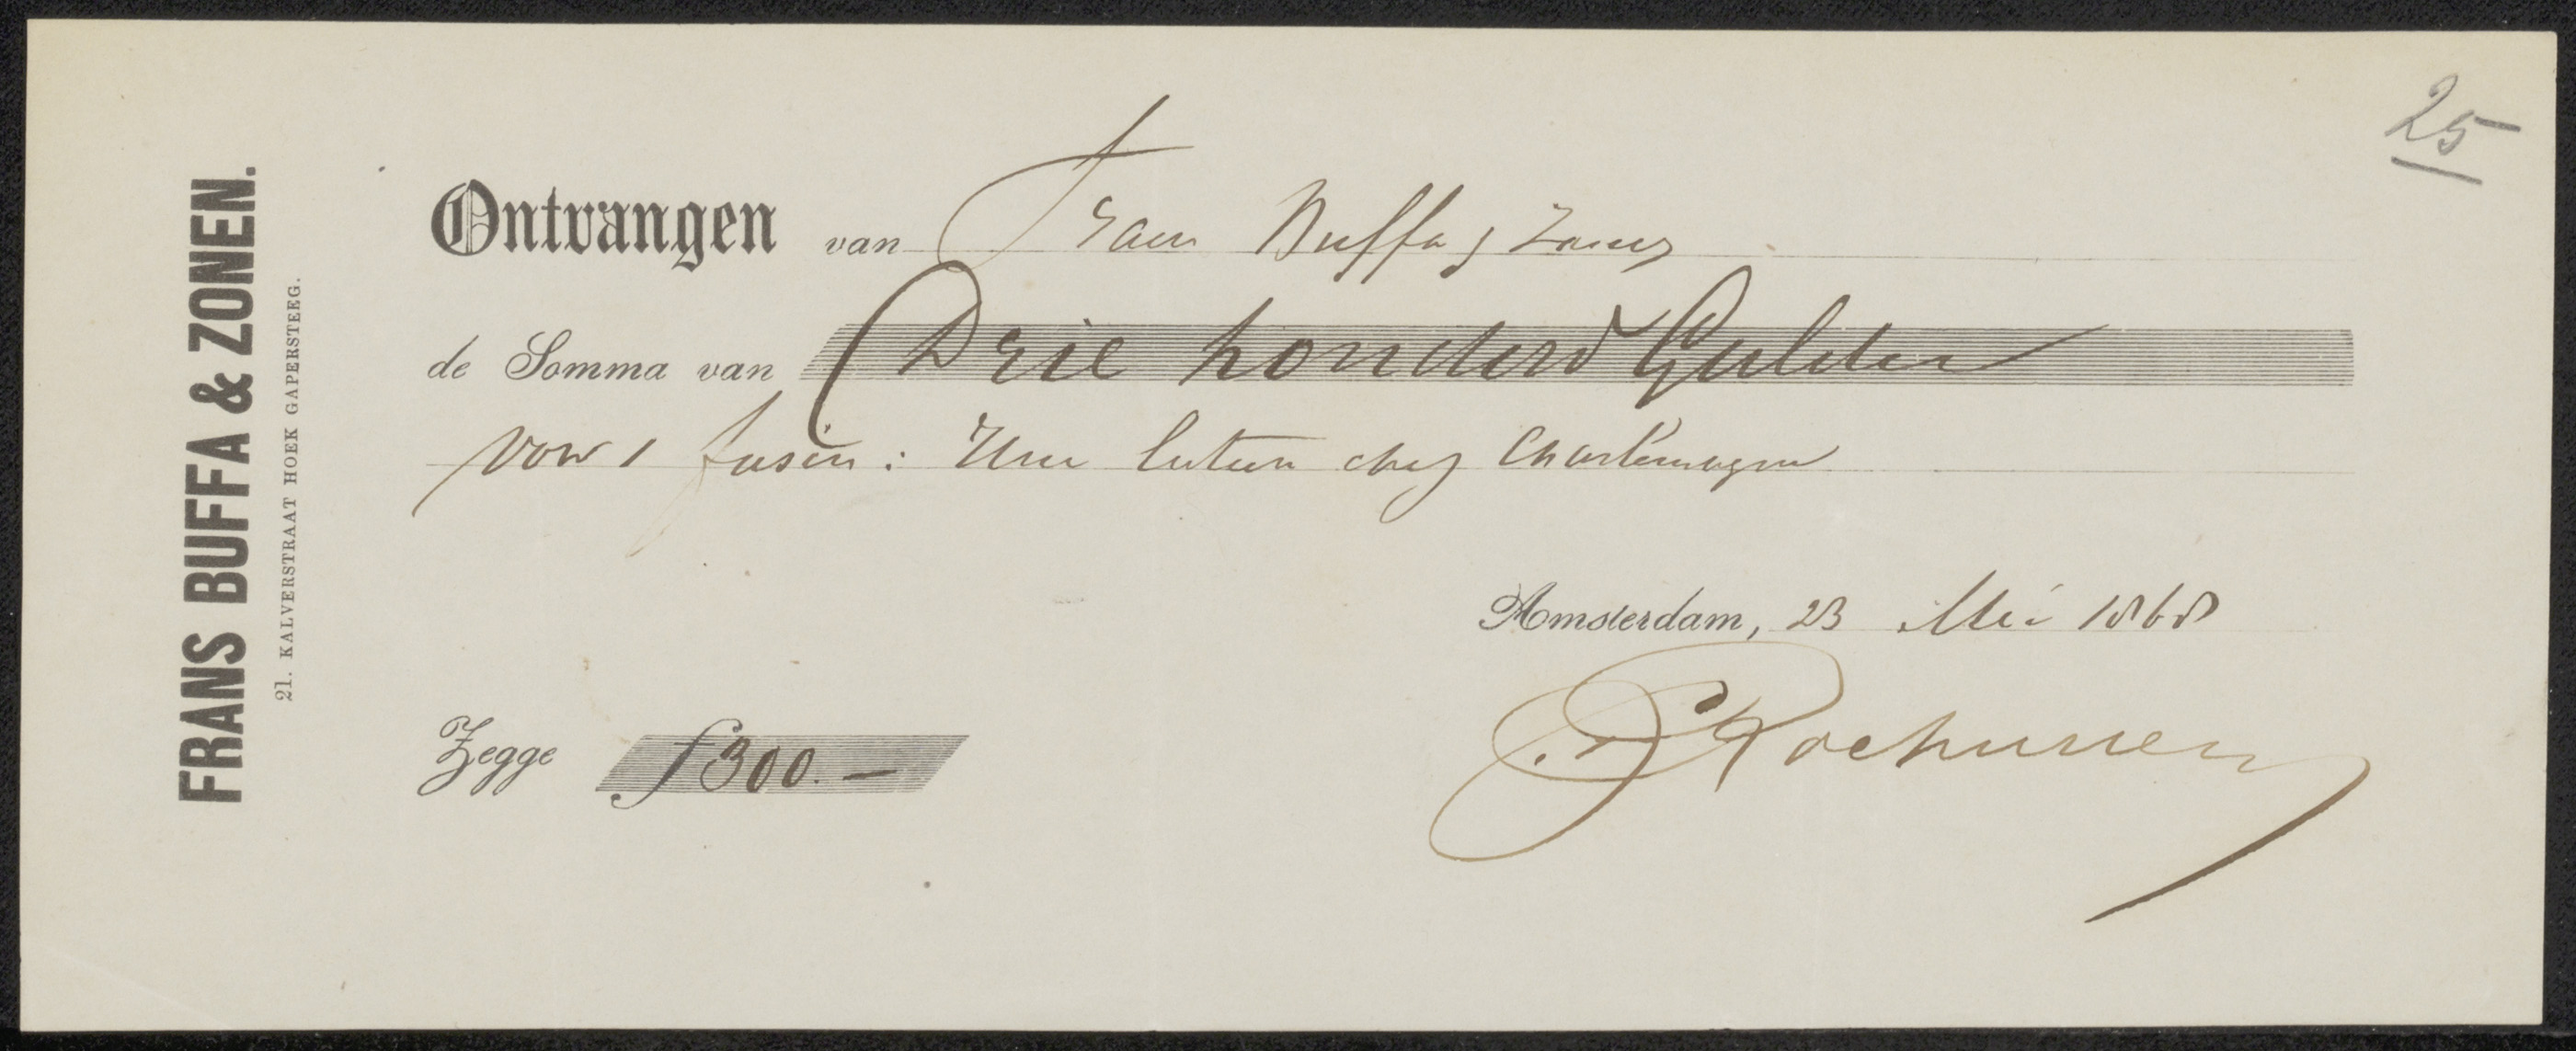 25
FRANS BUFFA & ZONEN.
21. KALVERSTRAAT HOEK GAPERSTEEG.
Ontvangen van Frans Buffa & Zonen
de Somma van Drie honderd Gulden
voor 1 fusin: Une lecture chez Charlemagne
Amsterdam, 23 Mei 1868
Zegge f 300. —
C Rochussen